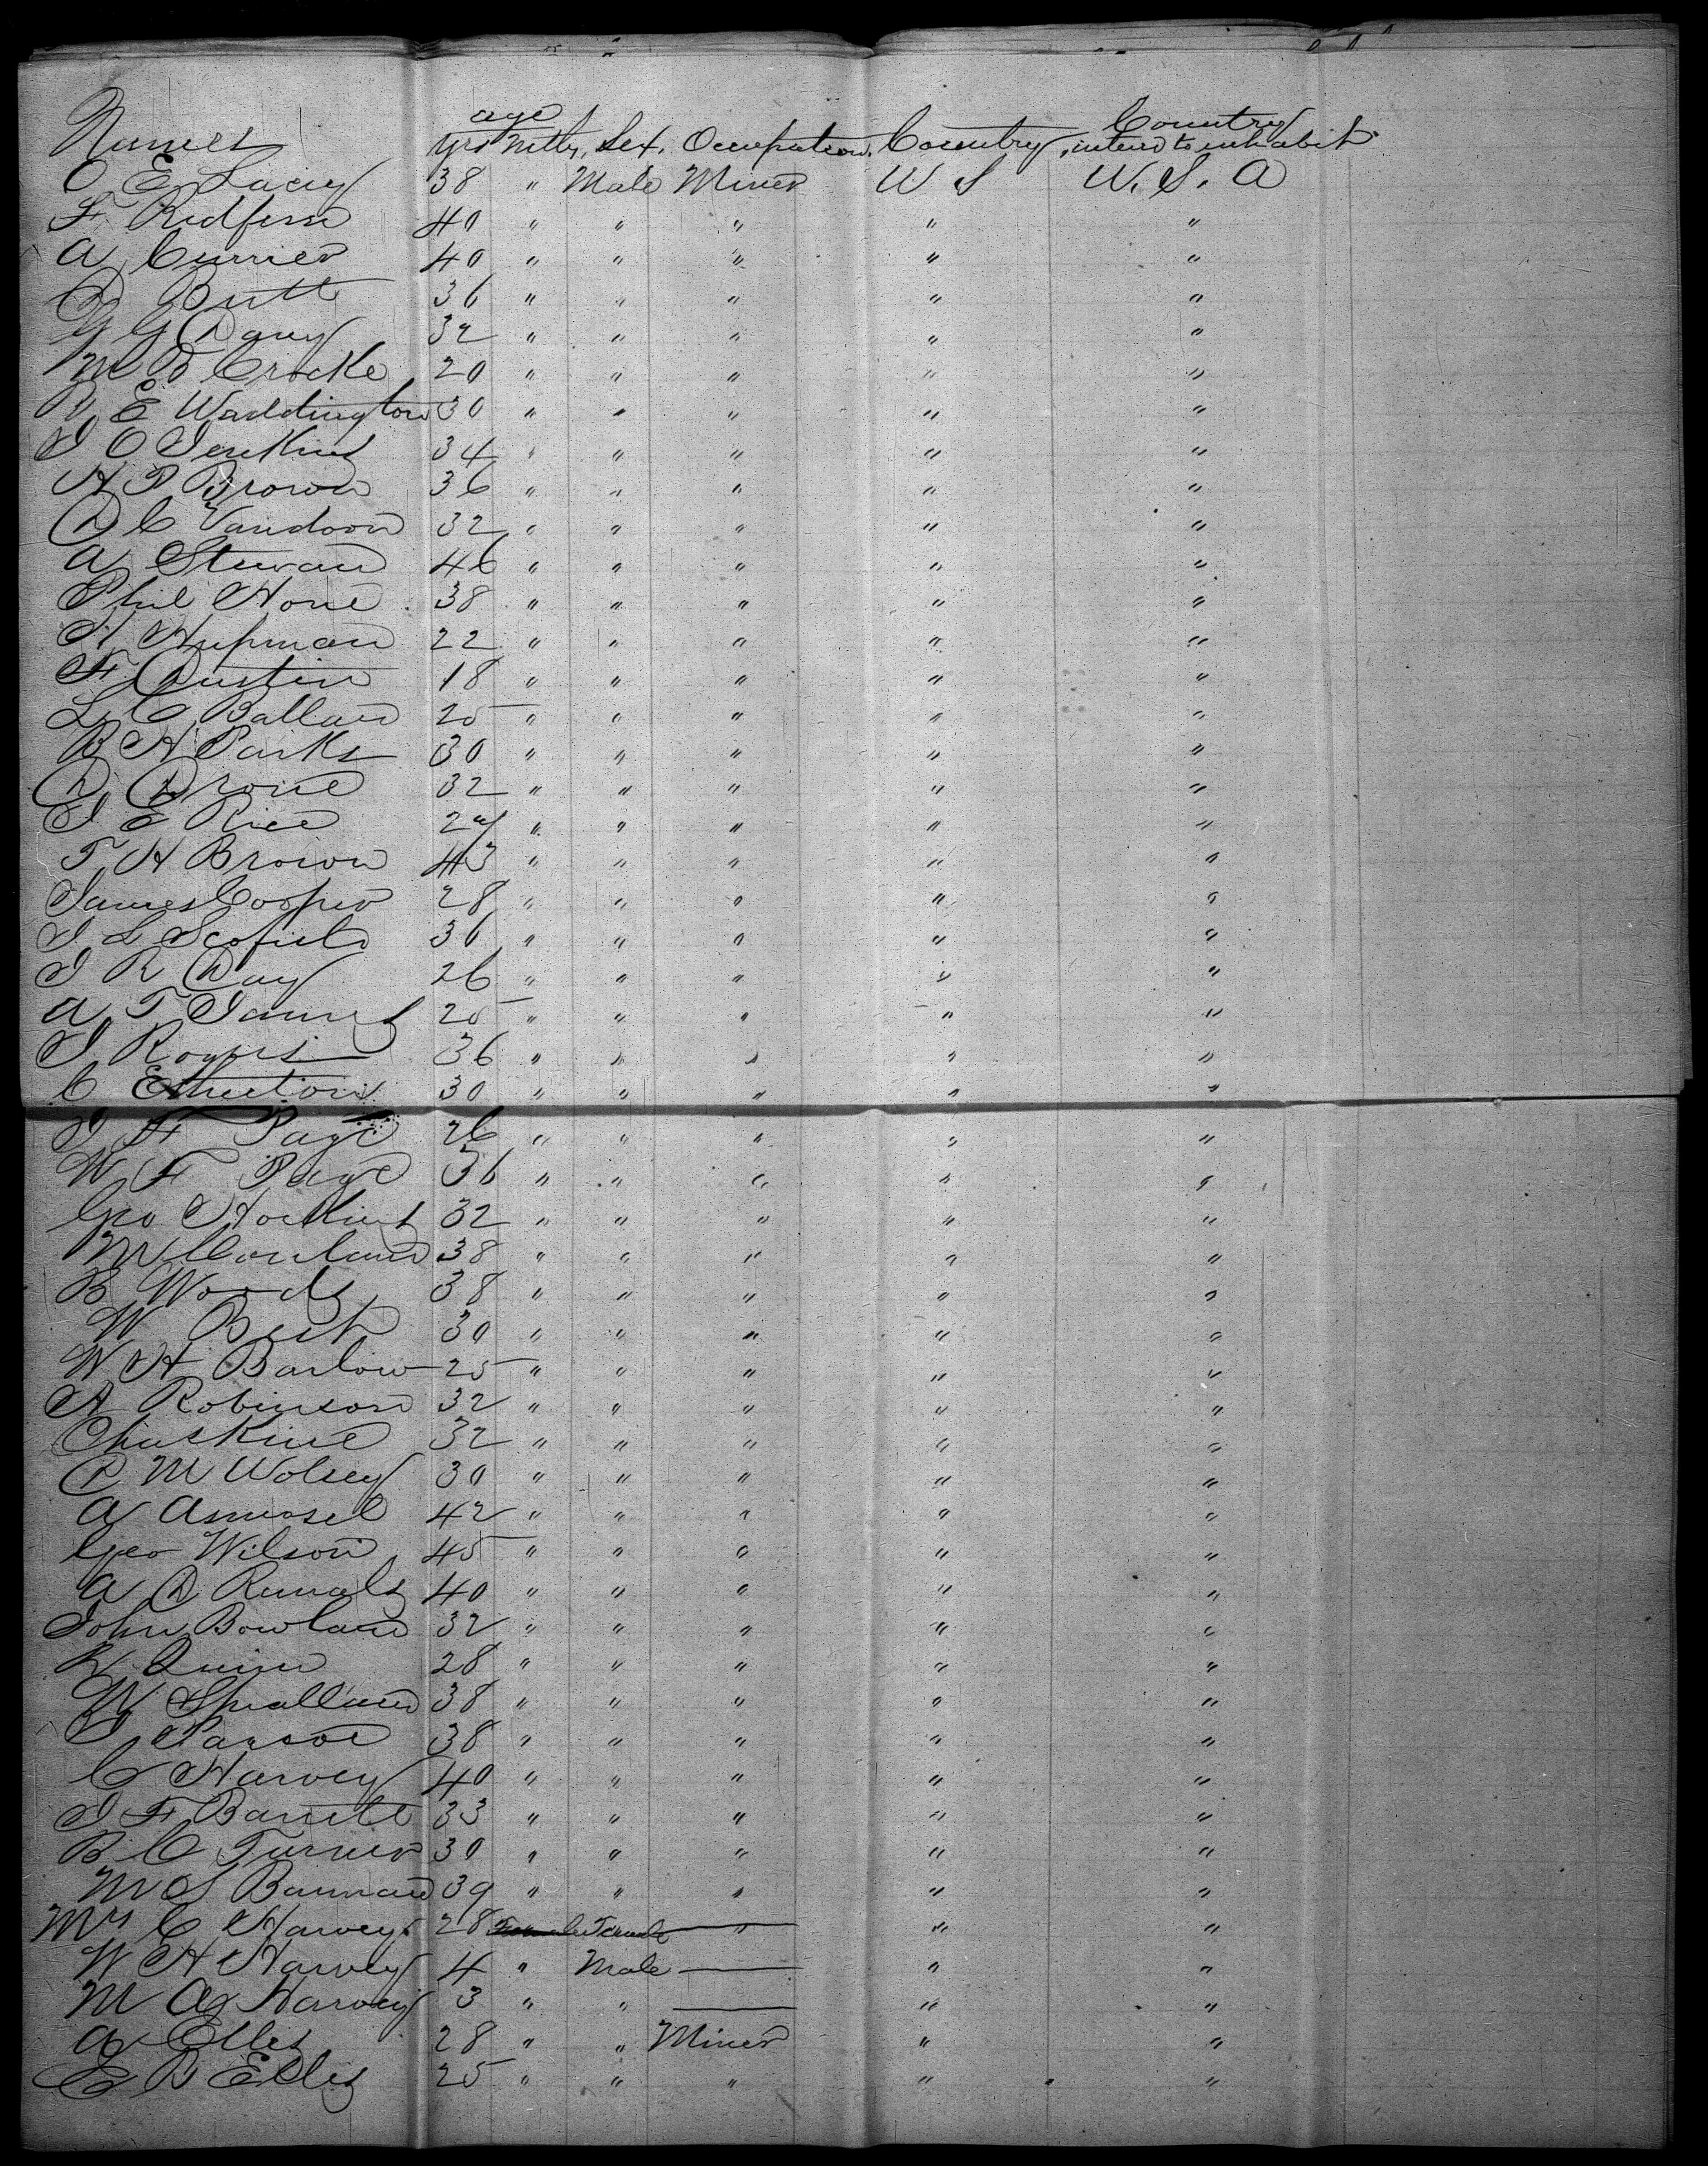 Names age yrs mths, Sex, Occupation, Country, Country intend to inhabit
O E Lacey 38 " Male Miner U S U. S. A
F Redfern 40 " " " " "
A Currier 40 " " " " "
D Butt 36 " " " " "
G G Davy 32 " " " " "
M D Crocke 20 " " " " "
R E Waddington 30 " " " " "
J O Jenkins 34 " " " " "
H P Brown 36 " " " " "
D C Vandoorn 32 " " " " "
A Steward 46 " " " " "
Phil Hone 38 " " " " "
H Hupman 22 " " " " "
F Dustin 18 " " " " "
L C Ballard 25 " " " " "
B H Parks 30 " " " " "
D Drone 32 " " " " "
J E Rice 24 " " " " "
T H Brown 43 " " " " "
James Cooper 28 " " " " "
J L Scofield 36 " " " " "
J R Day 26 " " " " "
A T James 25 " " " " "
J Rogers 36 " " " " "
C Etherton 30 " " " " "
J F Page 26 " " " " "
W F Page 36 " " " " "
Geo Hockins 32 " " " " "
M Conland 38 " " " " "
B Woods 38 " " " " "
W Best 30 " " " " "
W H Barlow 25 " " " " "
A Robinson 32 " " " " "
Chas Kine 32 " " " " "
P M Wolsey 30 " " " " "
A 42 " " " " "
Geo Wilson 45 " " " " "
A D Runals 40 " " " " "
John Bowland 32 " " " " "
R Quinn 28 " " " " "
W Smalland 38 " " " " "
J Pascoe 38 " " " " "
C Harvey 40 " " " " "
J F Barrett 33 " " " " "
B C Turner 30 " " " " "
M S Barnard 39 " " " " "
Mrs C Harvey 28 Female " " "
W H Harvey 4 " Male — " "
M A Harvey 3 " " — " "
A Elles 28 " " Miner " "
E B Elles 25 " " " " "